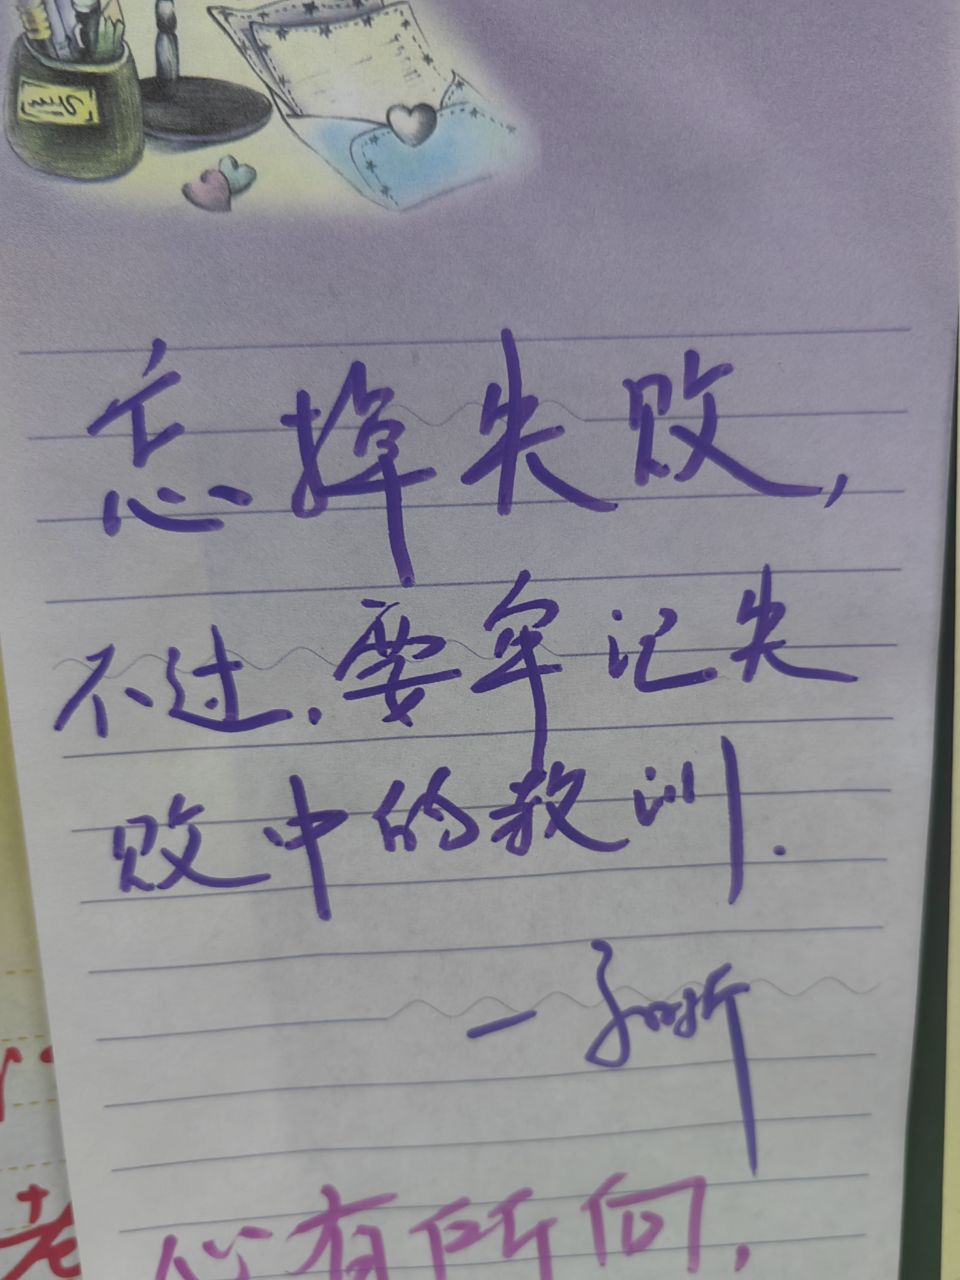 忘掉失败,
不过.要牢记失
败中的教训.
心有所向,
老